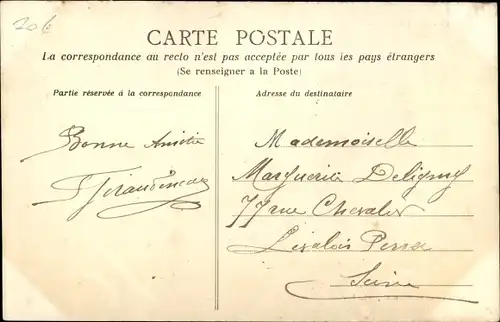 20 €
CARTE POSTALE
La correspondance au recto n'est pas acceptée par tous les pays étrangers
(Se renseigner a la Poste)
Partie réservée à la correspondance
Bonne Amitié
Adresse du destinataire
Mademoiselle
Marguerite Deligny
77 rue Chevalier
Levalois Perret
Seine